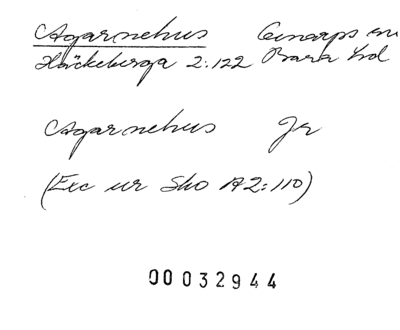 Agarnehus Genarps sn
Häckeberga 2:122 Bara hd
Agarnehus Jr
(Exc ur Sko A2:110)
00032944